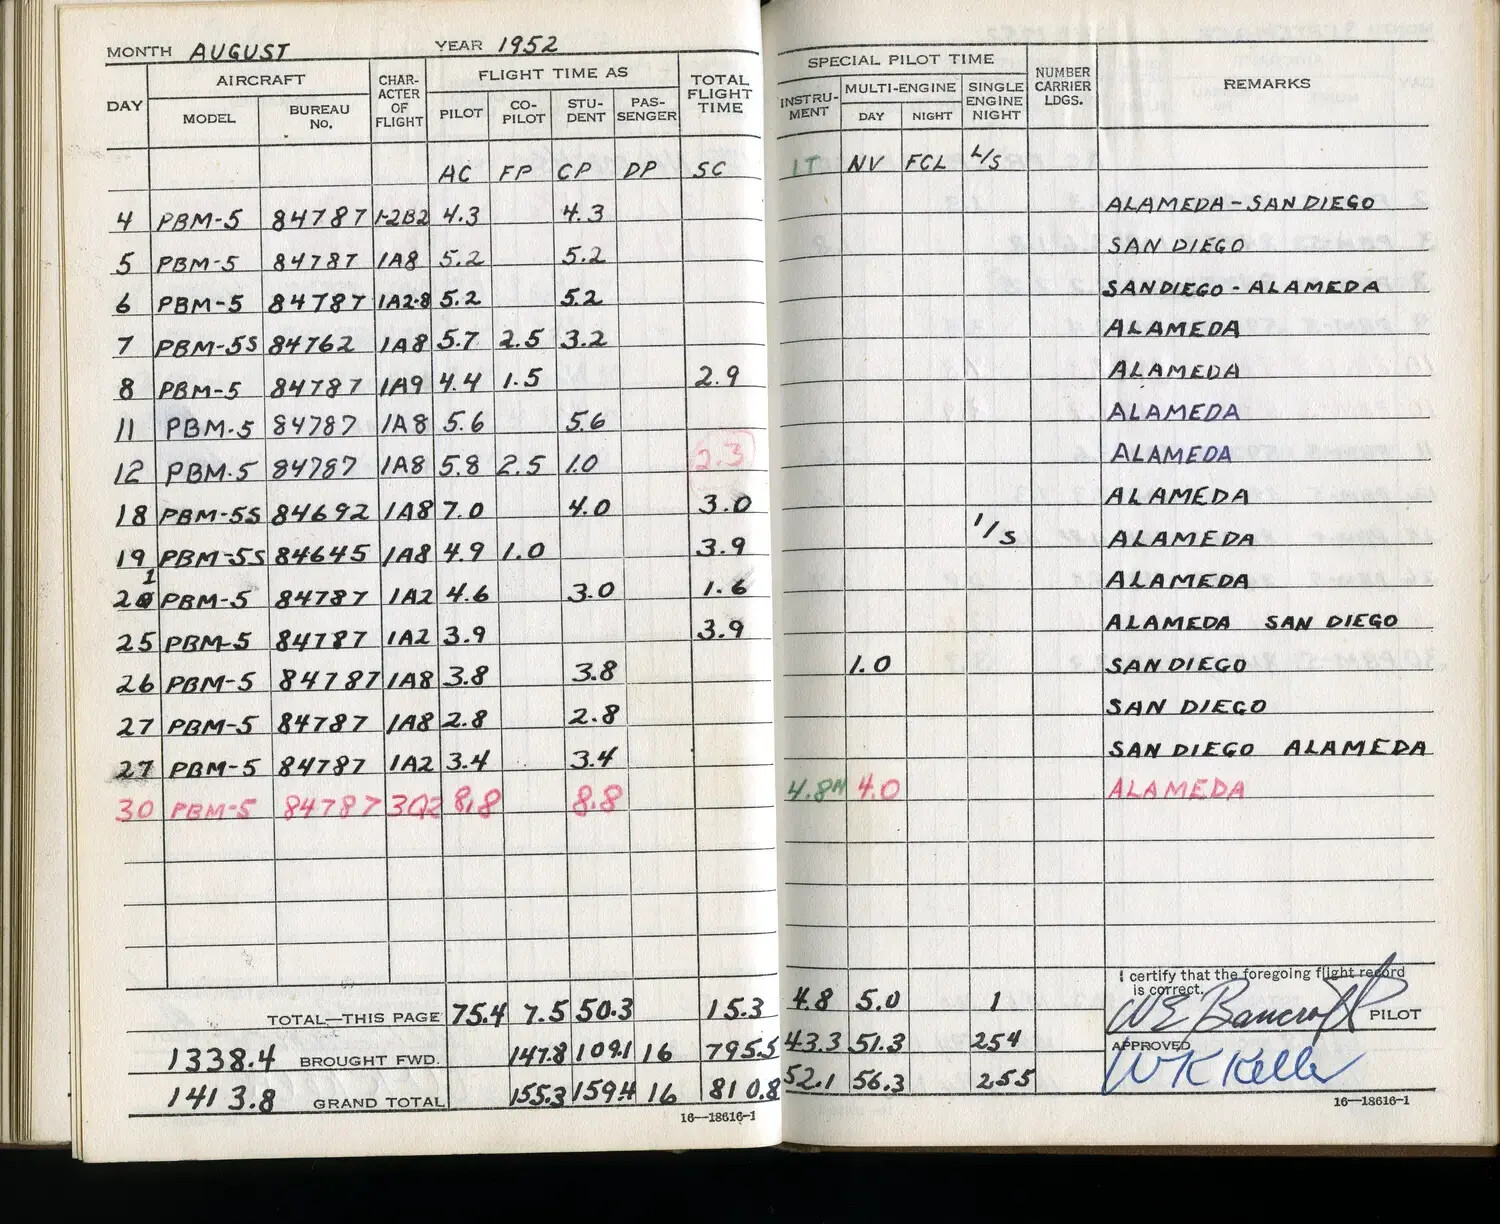 MONTH AUGUST YEAR 1952
DAY AIRCRAFT CHARACTER OF FLIGHT FLIGHT TIME AS TOTAL FLIGHT TIME SPECIAL PILOT TIME NUMBER CARRIER LDGS. REMARKS
MODEL BUREAU NO. PILOT CO-PILOT STUDENT PASSENGER INSTRUMENT MULTI-ENGINE SINGLE ENGINE NIGHT
DAY NIGHT
AC FP CP DP SC IT NV FCL L/S
4 PBM-5 84787 1-2B2 4.3 4.3 ALAMEDA-SAN DIEGO
5 PBM-5 84787 1A8 5.2 5.2 SAN DIEGO
6 PBM-5 84787 1A2-8 5.2 5.2 SANDIEGO-ALAMEDA
7 PBM-5S 84762 1A8 5.7 2.5 3.2 ALAMEDA
8 PBM-5 84787 1A9 4.4 1.5 2.9 ALAMEDA
11 PBM-5 84787 1A8 5.6 5.6 ALAMEDA
12 PBM-5 84787 1A8 5.8 2.5 1.0 2.3 ALAMEDA
18 PBM-5S 84692 1A8 7.0 4.0 3.0 ALAMEDA
19 PBM-5S 84645 1A8 4.9 1.0 3.9 1/S ALAMEDA
21 PBM-5 84787 1A2 4.6 3.0 1.6 ALAMEDA
25 PBM-5 84787 1A2 3.9 3.9 ALAMEDA SAN DIEGO
26 PBM-5 84787 1A8 3.8 3.8 1.0 SAN DIEGO
27 PBM-5 84787 1A8 2.8 2.8 SAN DIEGO
27 PBM-5 84787 1A2 3.4 3.4 SAN DIEGO ALAMEDA
30 PBM-5 84787 3Q2 8.8 8.8 4.8N 4.0 ALAMEDA
I certify that the foregoing flight record is correct.
TOTAL—THIS PAGE 75.4 7.5 50.3 15.3 4.8 5.0 1 WE Bancroft PILOT
1338.4 BROUGHT FWD. 147.8 109.1 16 795.5 43.3 51.3 254 APPROVED
1413.8 GRAND TOTAL 155.3 159.4 16 810.8 52.1 56.3 255 WK Keller
16—18616-1 16—18616-1